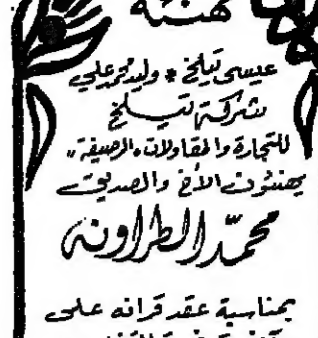 تهنئة
عيسى تيلخ * وليد محمد علي
شركة تيلخ
للتجارة والمقاولات "الرصيفة"
يهنئون الأخ والصديق
محمد الطراونه
بمناسبة عقد قرانه على